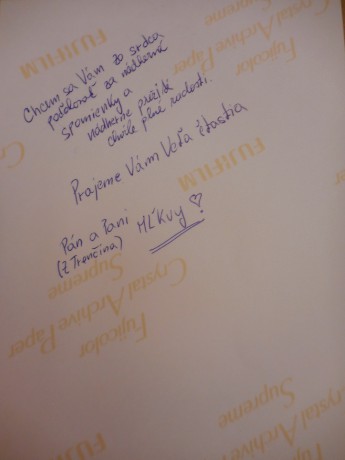 Chcem sa Vám zo srdca
poďakovať za nádherné
spomienky a
nádherne prežité
chvíle plné radosti.
Prajeme Vám Veľa šťastia
Pán a Pani
(z Trenčína)
MĽKVY
FUJIFILM
Crystal Archive Paper
Supreme
Fujicolor
FUJIFILM
Fujicolor
Crystal Archive Paper
Supreme
FUJIFILM
Crystal Archive Paper
Supreme